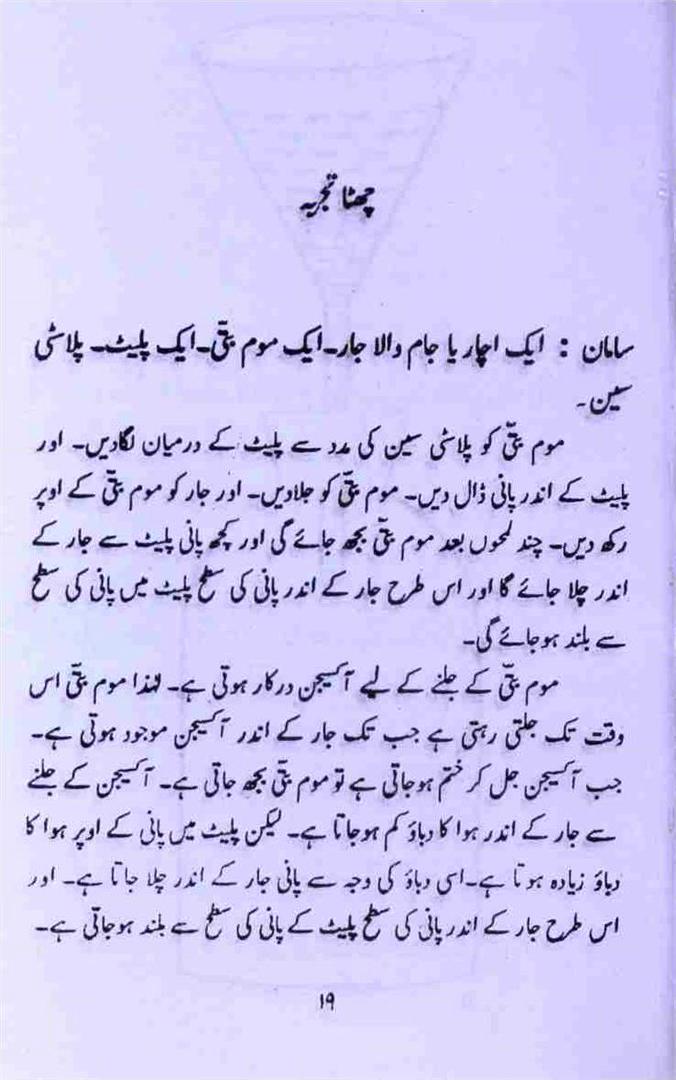 چھٹا تجربہ
سامان : ایک اچار یا جام والا جار۔ ایک موم بتّی۔ ایک پلیٹ۔ پلاسٹی
سین۔
موم بتّی کو پلاسٹی سین کی مدد سے پلیٹ کے درمیان لگادیں۔ اور
پلیٹ کے اندر پانی ڈال دیں۔ موم بتّی کو جلادیں۔ اور جار کو موم بتّی کے اوپر
رکھ دیں۔ چند لمحوں بعد موم بتّی بجھ جائے گی اور کچھ پانی پلیٹ سے جار کے
اندر چلا جائے گا اور اس طرح جار کے اندر پانی کی سطح پلیٹ میں پانی کی سطح
سے بلند ہوجائے گی۔
موم بتّی کے جلنے کے لیے آکسیجن درکار ہوتی ہے۔ لہٰذا موم بتّی اس
وقت تک جلتی رہتی ہے جب تک جار کے اندر آکسیجن موجود ہوتی ہے۔
جب آکسیجن جل کر ختم ہوجاتی ہے تو موم بتّی بجھ جاتی ہے۔ آکسیجن کے جلنے
سے جار کے اندر ہوا کا دباؤ کم ہوجاتا ہے۔ لیکن پلیٹ میں پانی کے اوپر ہوا کا
دباؤ زیادہ ہوتا ہے۔ اسی دباؤ کی وجہ سے پانی جار کے اندر چلا جاتا ہے۔ اور
اس طرح جار کے اندر پانی کی سطح پلیٹ کے پانی کی سطح سے بلند ہوجاتی ہے۔
۱۹